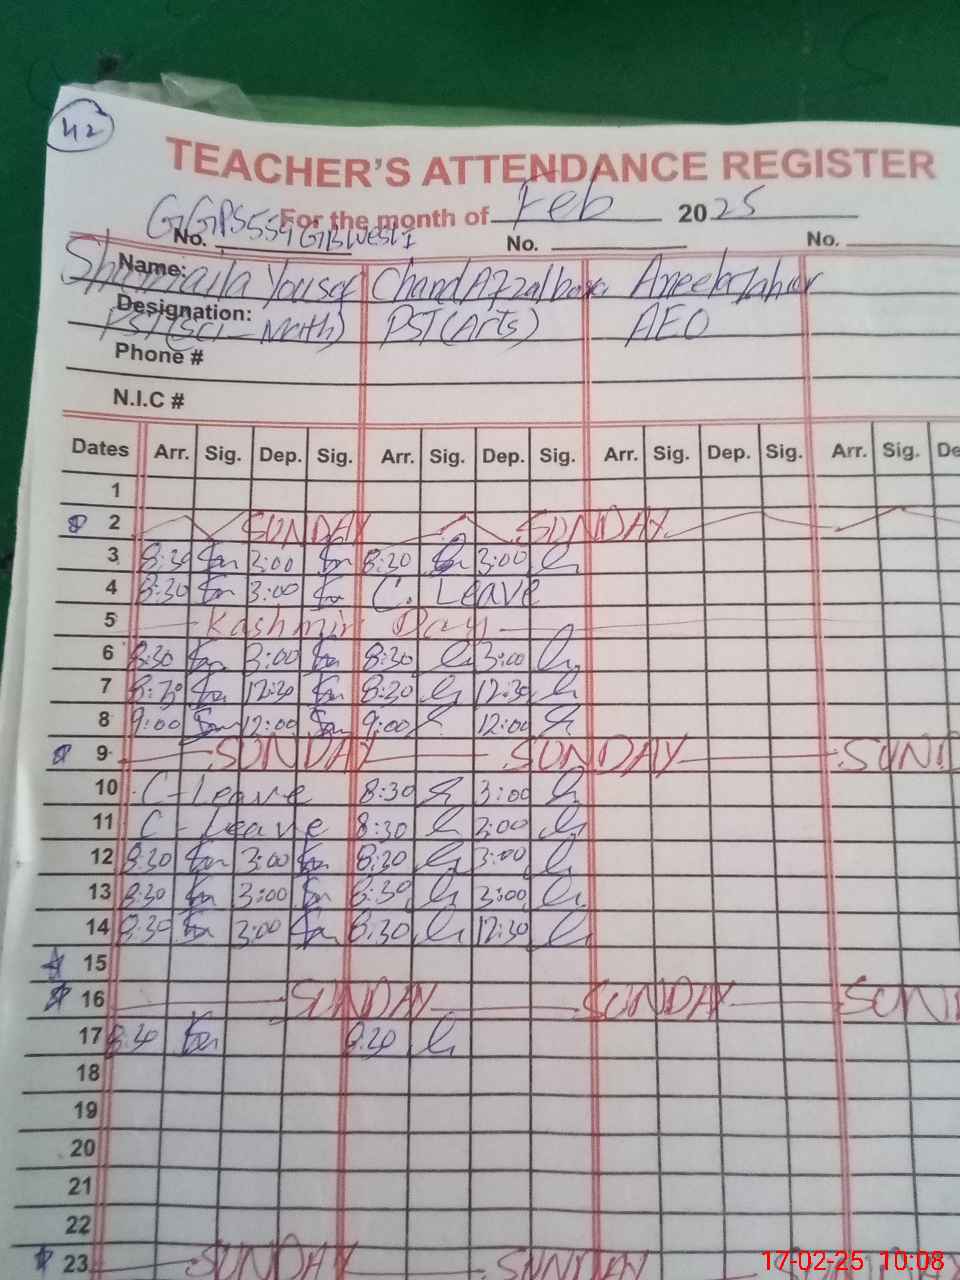 42
TEACHER'S ATTENDANCE REGISTER
For the month of Feb 2025
GGPS 559 GB West I
No. No. No.
Name: Shumaila Yousaf Chand Afzal Aneela Tahir
Designation: PST(Sci-Math) PST(Arts) AEO
Phone #
N.I.C #
Dates Arr. Sig. Dep. Sig. Arr. Sig. Dep. Sig. Arr. Sig. Dep. Sig. Arr. Sig. De
1
2 SUNDAY SUNDAY
3 8:30 3:00 8:30 3:00
4 8:30 3:00 C. Leave
5 Kashmir Day
6 8:30 3:00 8:30 3:00
7 8:30 12:30 8:30 12:30
8 9:00 12:00 9:00 12:00
9 SUNDAY SUNDAY SUND
10 C-Leave 8:30 3:00
11 C-Leave 8:30 3:00
12 8:30 3:00 8:30 3:00
13 8:30 3:00 8:30 3:00
14 8:30 3:00 8:30 12:30
15
16 SUNDAY SUNDAY SUND
17 8:30 8:30
18
19
20
21
22
23 SUNDAY SUNDAY SUNDAY
17-02-25 10:08